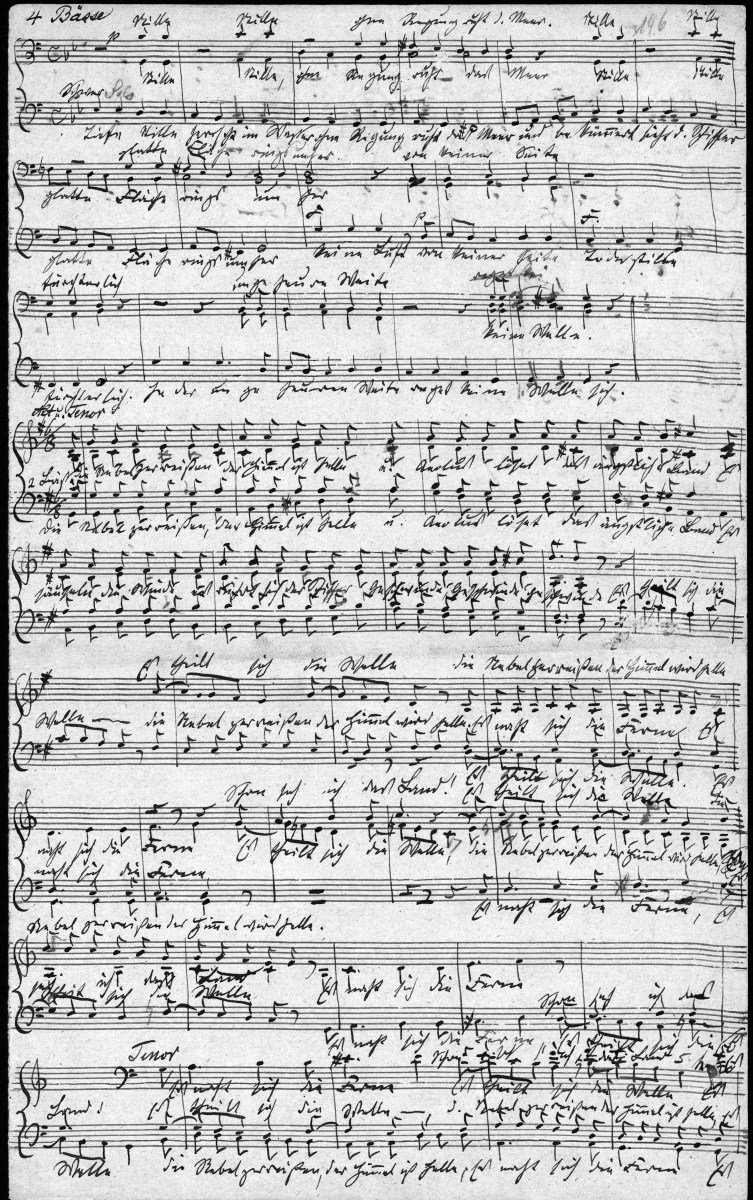 4 Bässe Stille Stille ohne Regung ruht d. Meer. Stille Stille
146
Stille Stille, ohne Regung ruht das Meer Stille Stille
Solo
Tiefe Stille herrscht im Wasser ohne Regung ruht das Meer und bekümmert sieht d. Schiffer
glatte Fläche ringsumher. von keiner Seite
glatte Fläche rings um her
glatte Fläche rings umher keine Luft von keiner Seite Todesstille
fürchterlich ungeheure Weite
keine Welle.
fürchterlich. In der ungeheuren Weite reget keine Welle sich.
Alt u. Tenor
Die Nebel zerreißen der Himmel ist helle u. Aeolus löset das ängstliche Band Es
2 Bässe
Die Nebel zerreißen, der Himmel ist helle u. Aeolus löset das ängstliche Band Es
säuseln die Winde es rührt sich der Schiffer Geschwinde Geschwinde Geschwinde Es theilt sich die
Es theilt sich die Welle die Nebel zerreißen der Himmel wird helle
Welle die Nebel zerreißen der Himmel wird helle. Es naht sich die Ferne, Es
Es theilt sich die Welle. Es
Schon seh ich das Land! Es theilt sich die Welle die
naht sich die Ferne Es theilt sich die Welle, die Nebel zerreißen der Himmel wird helle
naht sich die Ferne
Es naht sich die Ferne, Es
Nebel zerreißen der Himmel wird helle.
seh ich das Land Es naht sich die Ferne
theilt sich die Welle Schon seh ich das
Es naht sich die Ferne Es theilt sich die
Tenor
Es naht sich die Ferne Es theilt sich die Welle Es
Land! Es theilt sich die Welle, d. Nebel zerreißen der Himmel ist helle, Es
Welle die Nebel zerreißen, der Himmel ist helle, Es naht sich die Ferne Es